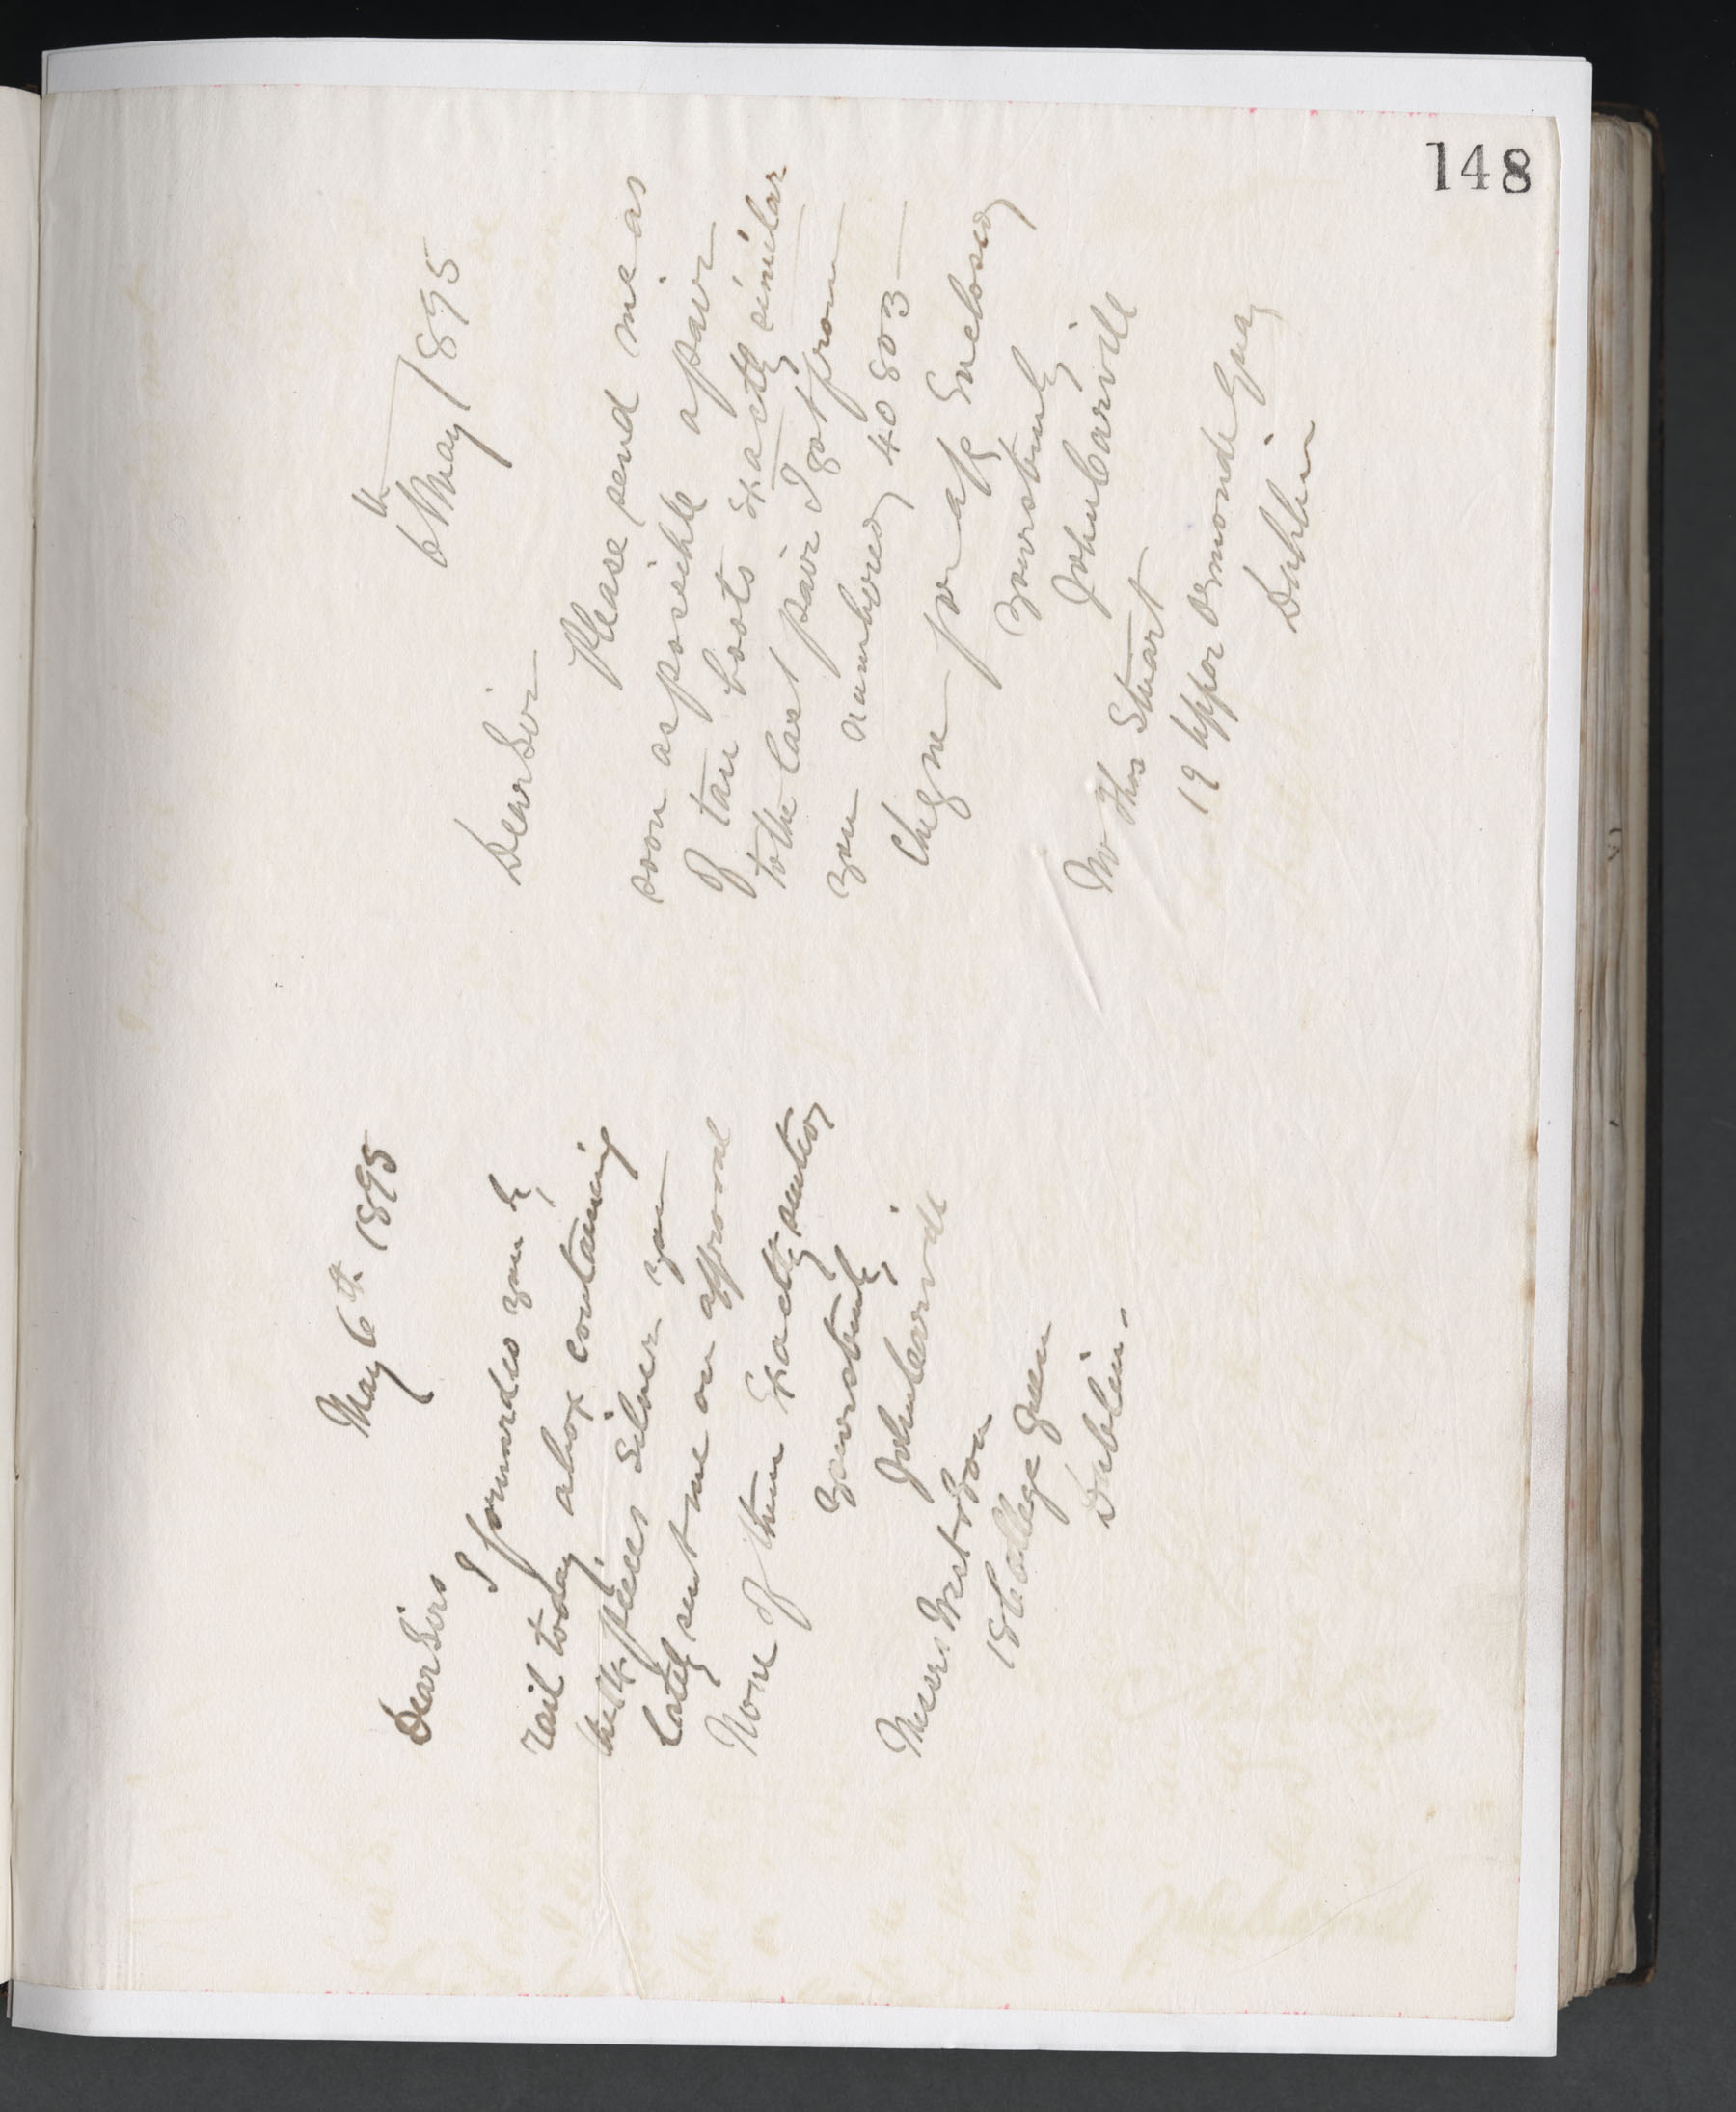 148
May 6th. 1895
Dear Sirs
I forwarded you by
rail today a box containing
the 14 pieces silver you
lately sent me on approval
None of them Exactly suited
Yours truly,
John Carvill
Messrs West & Son
18 College Green
Dublin.
6th May 1895
Dear Sir
Please send me as
soon as possible a pair
of tan boots Exactly similar
to the last pair I got from
you numbered 40803
Cheque for a/c Enclosed
Yours truly
John Carvill
Mr Thos Stuart
19 Upper Ormond Quay
Dublin